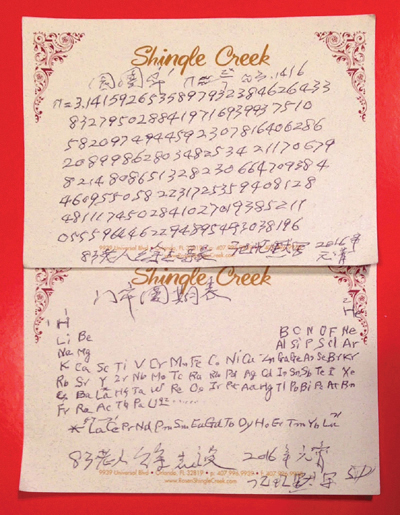 Shingle Creek
圆周率 π≈ ≈3.1416
π=3.1415926535897932384626433
8327950288419716939937510
5820974944592307816406286
2089986280348253421170679
8214808651328230664709384
4609550582231725359408128
4811174502841027019385211
0555964462294895493038196
9939 Universal Blvd • Orlando, FL 32819
83老人 2016年
元宵
Shingle Creek
周期表
H
Li Be B C N O F Ne
Na Mg Al Si P S Cl Ar
K Ca Sc Ti V Cr Mn Fe Co Ni Cu Zn Ga Ge As Se Br Kr
Rb Sr Y Zr Nb Mo Tc Ru Rh Pd Ag Cd In Sn Sb Te I Xe
Cs Ba La Hf Ta W Re Os Ir Pt Au Hg Tl Pb Bi Po At Rn
Fr Ra Ac Th Pa U
* La Ce Pr Nd Pm Sm Eu Gd Tb Dy Ho Er Tm Yb Lu
83老人 2016年元宵
9939 Universal Blvd • Orlando, FL 32819 • p. 407.996.9939
www.RosenShingleCreek.com